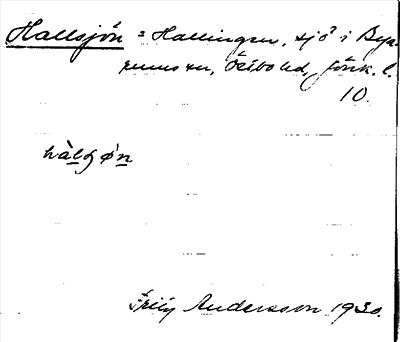 Hallsjön = Hallingen, sjö i Bya-
rums sn, Östbo hd, Jönk. l.
10.
hàlʃø̀n
Andersson 1930.